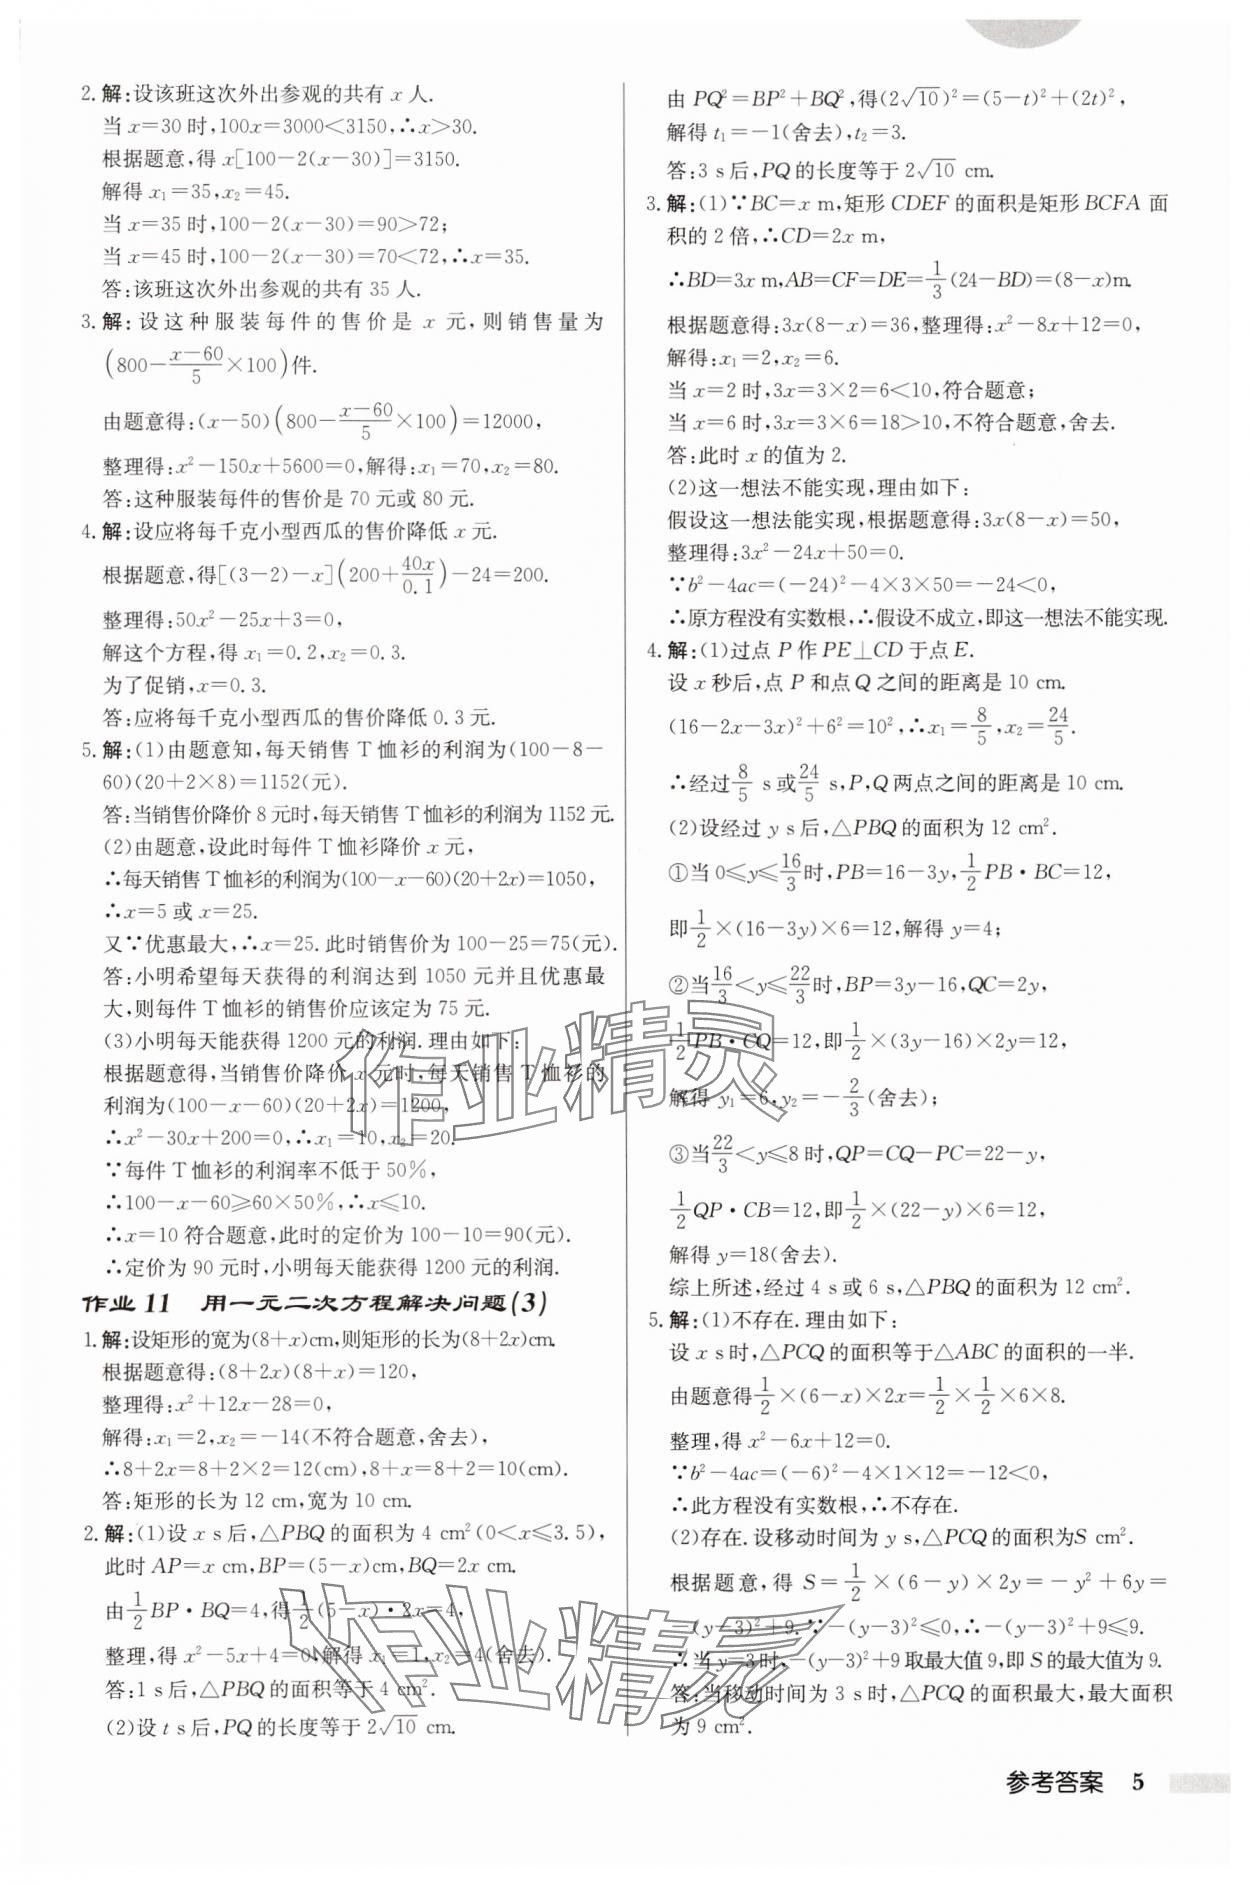 2. 解:设该班这次外出参观的共有 x 人.
当 x=30 时,100x=3000<3150,∴x>30.
根据题意,得 x[100-2(x-30)]=3150.
解得 x₁=35,x₂=45.
当 x=35 时,100-2(x-30)=90>72;
当 x=45 时,100-2(x-30)=70<72,∴x=35.
答:该班这次外出参观的共有 35 人.
3. 解:设这种服装每件的售价是 x 元,则销售量为
(800-\frac{x-60}{5}×100)件.
由题意得:(x-50)(800-\frac{x-60}{5}×100)=12000,
整理得:x²-150x+5600=0,解得:x₁=70,x₂=80.
答:这种服装每件的售价是 70 元或 80 元.
4. 解:设应将每千克小型西瓜的售价降低 x 元.
根据题意,得[(3-2)-x](200+\frac{40x}{0.1})-24=200.
整理得:50x²-25x+3=0,
解这个方程,得 x₁=0.2,x₂=0.3.
为了促销,x=0.3.
答:应将每千克小型西瓜的售价降低 0.3 元.
5. 解:(1)由题意知,每天销售 T 恤衫的利润为(100-8-
60)(20+2×8)=1152(元).
答:当销售价降价 8 元时,每天销售 T 恤衫的利润为 1152 元.
(2)由题意,设此时每件 T 恤衫降价 x 元,
∴每天销售 T 恤衫的利润为(100-x-60)(20+2x)=1050,
∴x=5 或 x=25.
又∵优惠最大,∴x=25. 此时销售价为 100-25=75(元).
答:小明希望每天获得的利润达到 1050 元并且优惠最
大,则每件 T 恤衫的销售价应该定为 75 元.
(3)小明每天能获得 1200 元的利润. 理由如下:
根据题意得,当销售价降价 x 元时,每天销售 T 恤衫的
利润为(100-x-60)(20+2x)=1200,
∴x²-30x+200=0,∴x₁=10,x₂=20.
∵每件 T 恤衫的利润率不低于 50%,
∴100-x-60≥60×50%,∴x≤10.
∴x=10 符合题意,此时的定价为 100-10=90(元).
∴定价为 90 元时,小明每天能获得 1200 元的利润.
作业 11 用一元二次方程解决问题(3)
1. 解:设矩形的宽为(8+x)cm,则矩形的长为(8+2x)cm.
根据题意得:(8+2x)(8+x)=120,
整理得:x²+12x-28=0,
解得:x₁=2,x₂=-14(不符合题意,舍去),
∴8+2x=8+2×2=12(cm),8+x=8+2=10(cm).
答:矩形的长为 12 cm,宽为 10 cm.
2. 解:(1)设 x s 后,△PBQ 的面积为 4 cm²(0<x≤3.5),
此时 AP=x cm,BP=(5-x)cm,BQ=2x cm.
由\frac{1}{2}BP·BQ=4,得\frac{1}{2}(5-x)·2x=4,
整理,得 x²-5x+4=0,解得 x₁=1,x₂=4(舍去).
答:1 s 后,△PBQ 的面积等于 4 cm².
(2)设 t s 后,PQ 的长度等于 2√10 cm.
由 PQ²=BP²+BQ²,得(2√10)²=(5-t)²+(2t)²,
解得 t₁=-1(舍去),t₂=3.
答:3 s 后,PQ 的长度等于 2√10 cm.
3. 解:(1)∵BC=x m,矩形 CDEF 的面积是矩形 BCFA 面
积的 2 倍,∴CD=2x m,
∴BD=3x m,AB=CF=DE=\frac{1}{3}(24-BD)=(8-x)m.
根据题意得:3x(8-x)=36,整理得:x²-8x+12=0,
解得:x₁=2,x₂=6.
当 x=2 时,3x=3×2=6<10,符合题意;
当 x=6 时,3x=3×6=18>10,不符合题意,舍去.
答:此时 x 的值为 2.
(2)这一想法不能实现,理由如下:
假设这一想法能实现,根据题意得:3x(8-x)=50,
整理得:3x²-24x+50=0.
∵b²-4ac=(-24)²-4×3×50=-24<0,
∴原方程没有实数根,∴假设不成立,即这一想法不能实现.
4. 解:(1)过点 P 作 PE⊥CD 于点 E.
设 x 秒后,点 P 和点 Q 之间的距离是 10 cm.
(16-2x-3x)²+6²=10²,∴x₁=\frac{8}{5},x₂=\frac{24}{5}.
∴经过\frac{8}{5} s 或\frac{24}{5} s,P,Q 两点之间的距离是 10 cm.
(2)设经过 y s 后,△PBQ 的面积为 12 cm².
①当 0≤y≤\frac{16}{3}时,PB=16-3y,\frac{1}{2}PB·BC=12,
即\frac{1}{2}×(16-3y)×6=12,解得 y=4;
②当\frac{16}{3}<y≤\frac{22}{3}时,BP=3y-16,QC=2y,
\frac{1}{2}PB·CQ=12,即\frac{1}{2}×(3y-16)×2y=12,
解得 y₁=6,y₂=-\frac{2}{3}(舍去);
③当\frac{22}{3}<y≤8 时,QP=CQ-PC=22-y,
\frac{1}{2}QP·CB=12,即\frac{1}{2}×(22-y)×6=12,
解得 y=18(舍去).
综上所述,经过 4 s 或 6 s,△PBQ 的面积为 12 cm².
5. 解:(1)不存在. 理由如下:
设 x s 时,△PCQ 的面积等于△ABC 的面积的一半.
由题意得\frac{1}{2}×(6-x)×2x=\frac{1}{2}×\frac{1}{2}×6×8.
整理,得 x²-6x+12=0.
∵b²-4ac=(-6)²-4×1×12=-12<0,
∴此方程没有实数根,∴不存在.
(2)存在. 设移动时间为 y s,△PCQ 的面积为S cm².
根据题意,得 S=\frac{1}{2}×(6-y)×2y=-y²+6y=
-(y-3)²+9. ∵-(y-3)²≤0,∴-(y-3)²+9≤9.
∴当 y=3 时,-(y-3)²+9 取最大值 9,即 S 的最大值为 9.
答:当移动时间为 3 s 时,△PCQ 的面积最大,最大面积
为 9 cm².
作业精灵
作业精灵
参考答案 5